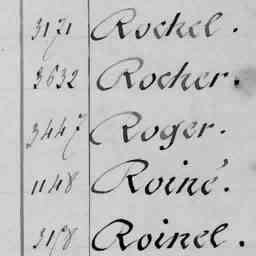 3171 Rochel.
3632 Rocher.
3447 Roger.
1148 Roiné.
3178 Roinel.